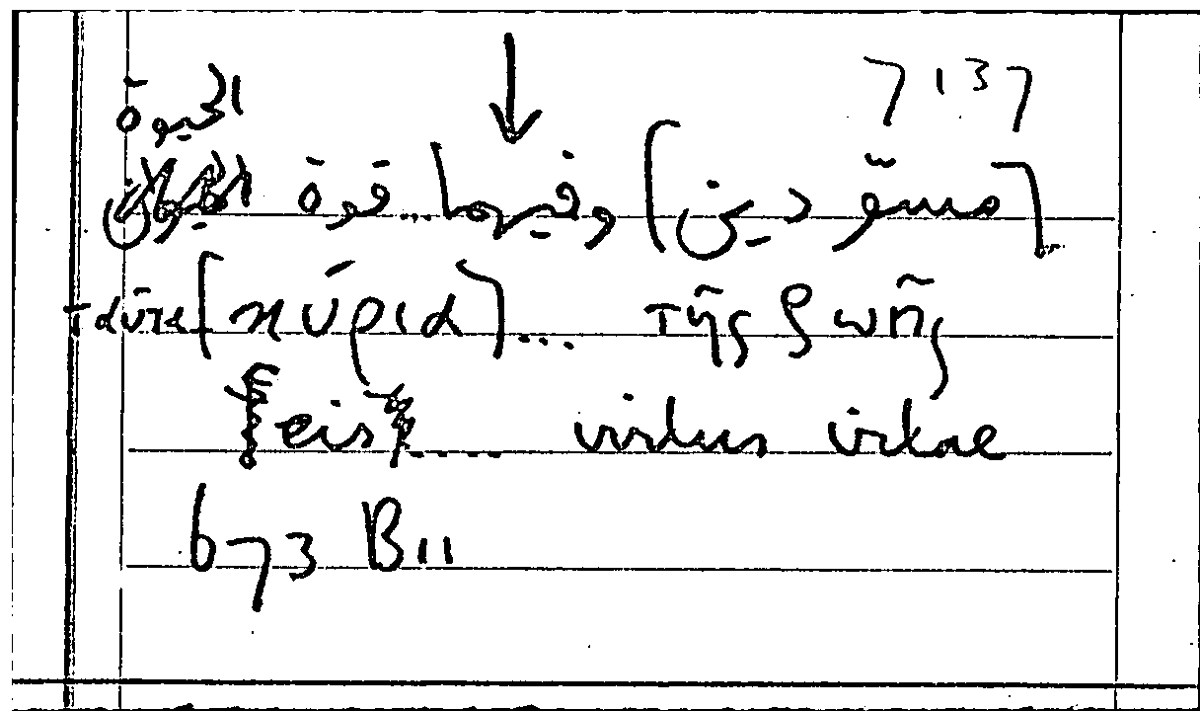 7137
الحيوة
[مستوقدين] وفيهما...قوة
ταῦτα [κύρια]... τῆς ζωῆς
eis ..... virtus vitae
673 B11